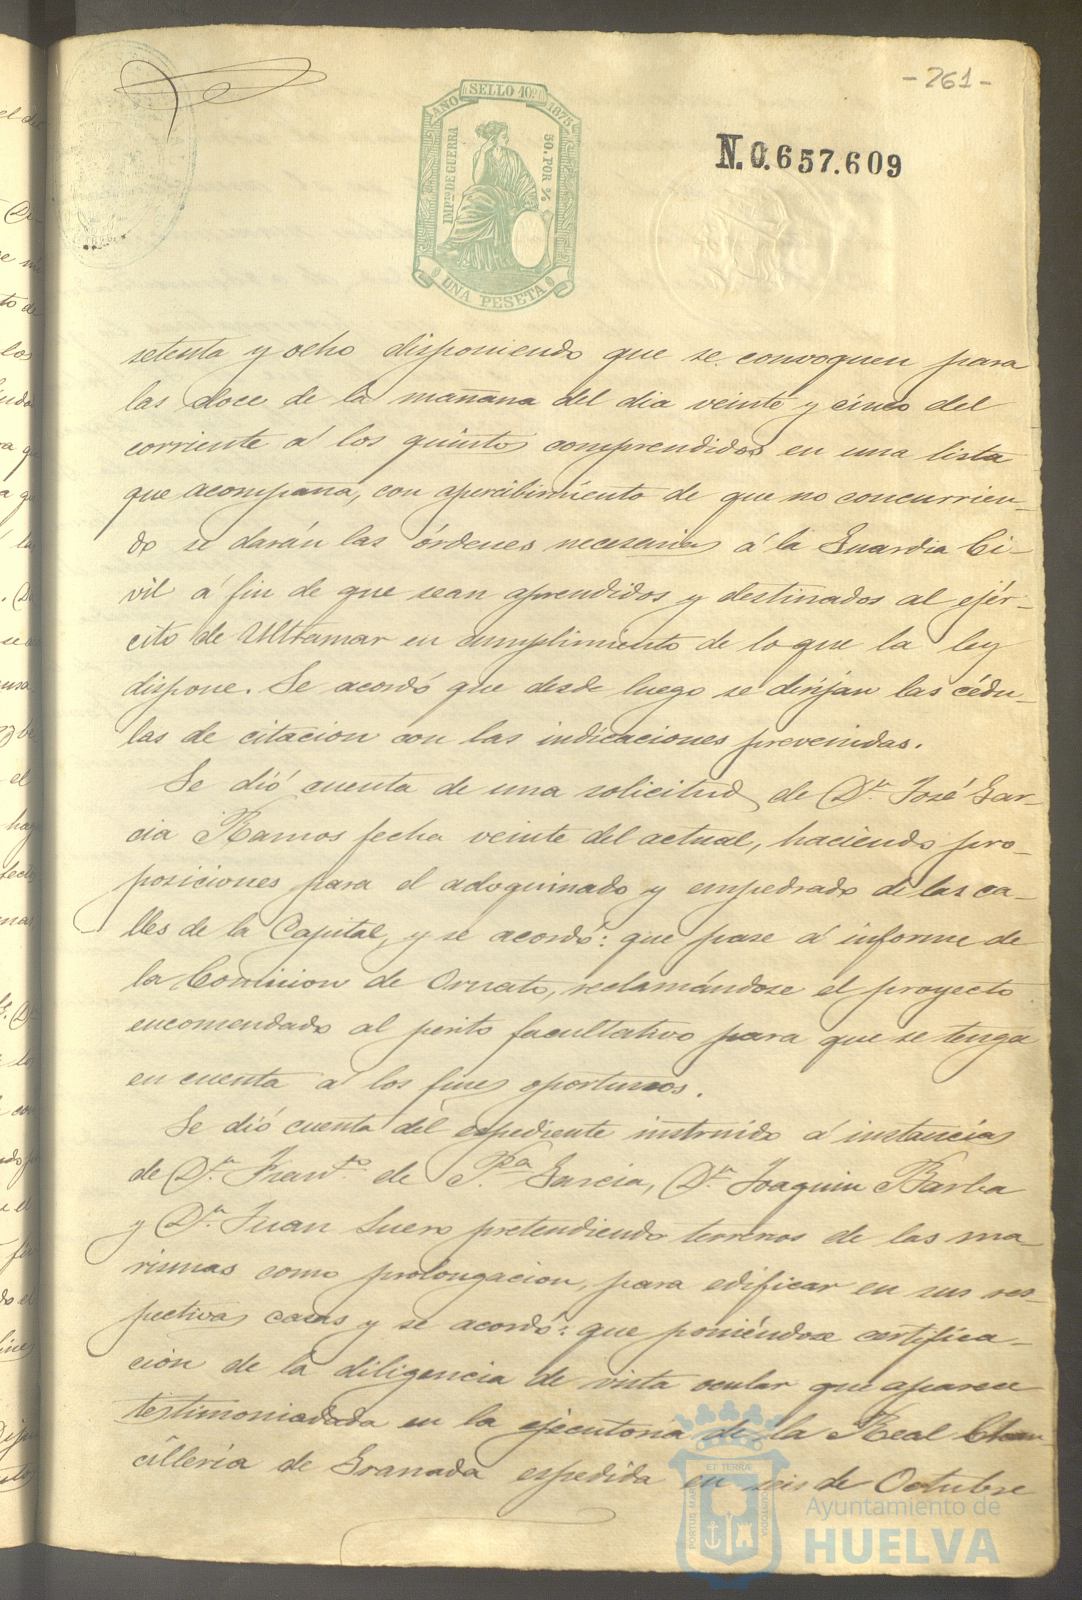 - 261 -
AÑO SELLO 10º 1878
IMPTO DE GUERRA
50. POR %
UNA PESETA
N. 0.657.609
setenta y ocho disponiendo que se convoquen para
las doce de la mañana del dia veinte y cinco del
corriente á los quintos comprendidos en una lista
que acompaña, con apercibimiento de que no concurrien-
do se darán las órdenes necesarias á la Guardia Ci-
vil á fin de que sean aprendidos y destinados al ejér-
cito de Ultramar en cumplimiento de lo que la ley
dispone. Se acordó que desde luego se dirijan las cédu-
las de citacion con las indicaciones prevenidas.
Se dió cuenta de una solicitud de Dn. José Gar-
cia Ramos fecha veinte del actual, haciendo pro-
posiciones para el adoquinado y empedrado de las ca-
lles de la Capital, y se acordó: que pase á informe de
la Comision de Ornato, reclamándose el proyecto
encomendado al perito facultativo para que se tenga
en cuenta á los fines oportunos.
Se dió cuenta del espediente instruido á instancias
de Dn. Franco. de P.a Garcia, Dn. Joaquin Barba
y Dn. Juan Suero pretendiendo terrenos de las ma-
rismas como prolongacion, para edificar en sus res-
pectivas casas y se acordó: que poniéndose certifica-
cion de la diligencia de vista ocular que aparece
testimoniadada en la ejecutoria de la Real Chan-
cillería de Granada espedida en seis de Octubre
ET TERRÆ
PORTUS MARIS
CUSTODIA
Ayuntamiento de
HUELVA